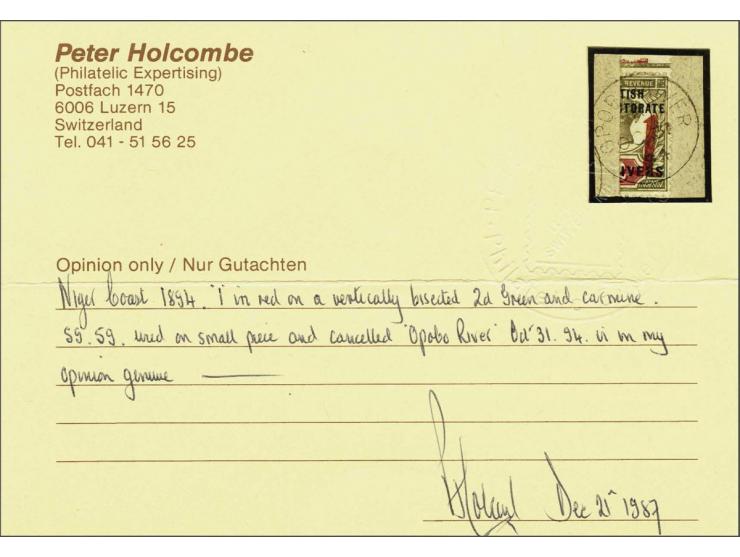 Peter Holcombe
(Philatelic Expertising)
Postfach 1470
6006 Luzern 15
Switzerland
Tel. 041 - 51 56 25
REVENUE
TISH
TORATE
OPOBO RIVER
IVERS
Opinion only / Nur Gutachten
Niger Coast 1894. '1' in red on a vertically bisected 2d Green and carmine.
SG. 59. used on small piece and cancelled 'Opobo River' Oct 31. 94. is in my
opinion genuine
Dec 21st 1987